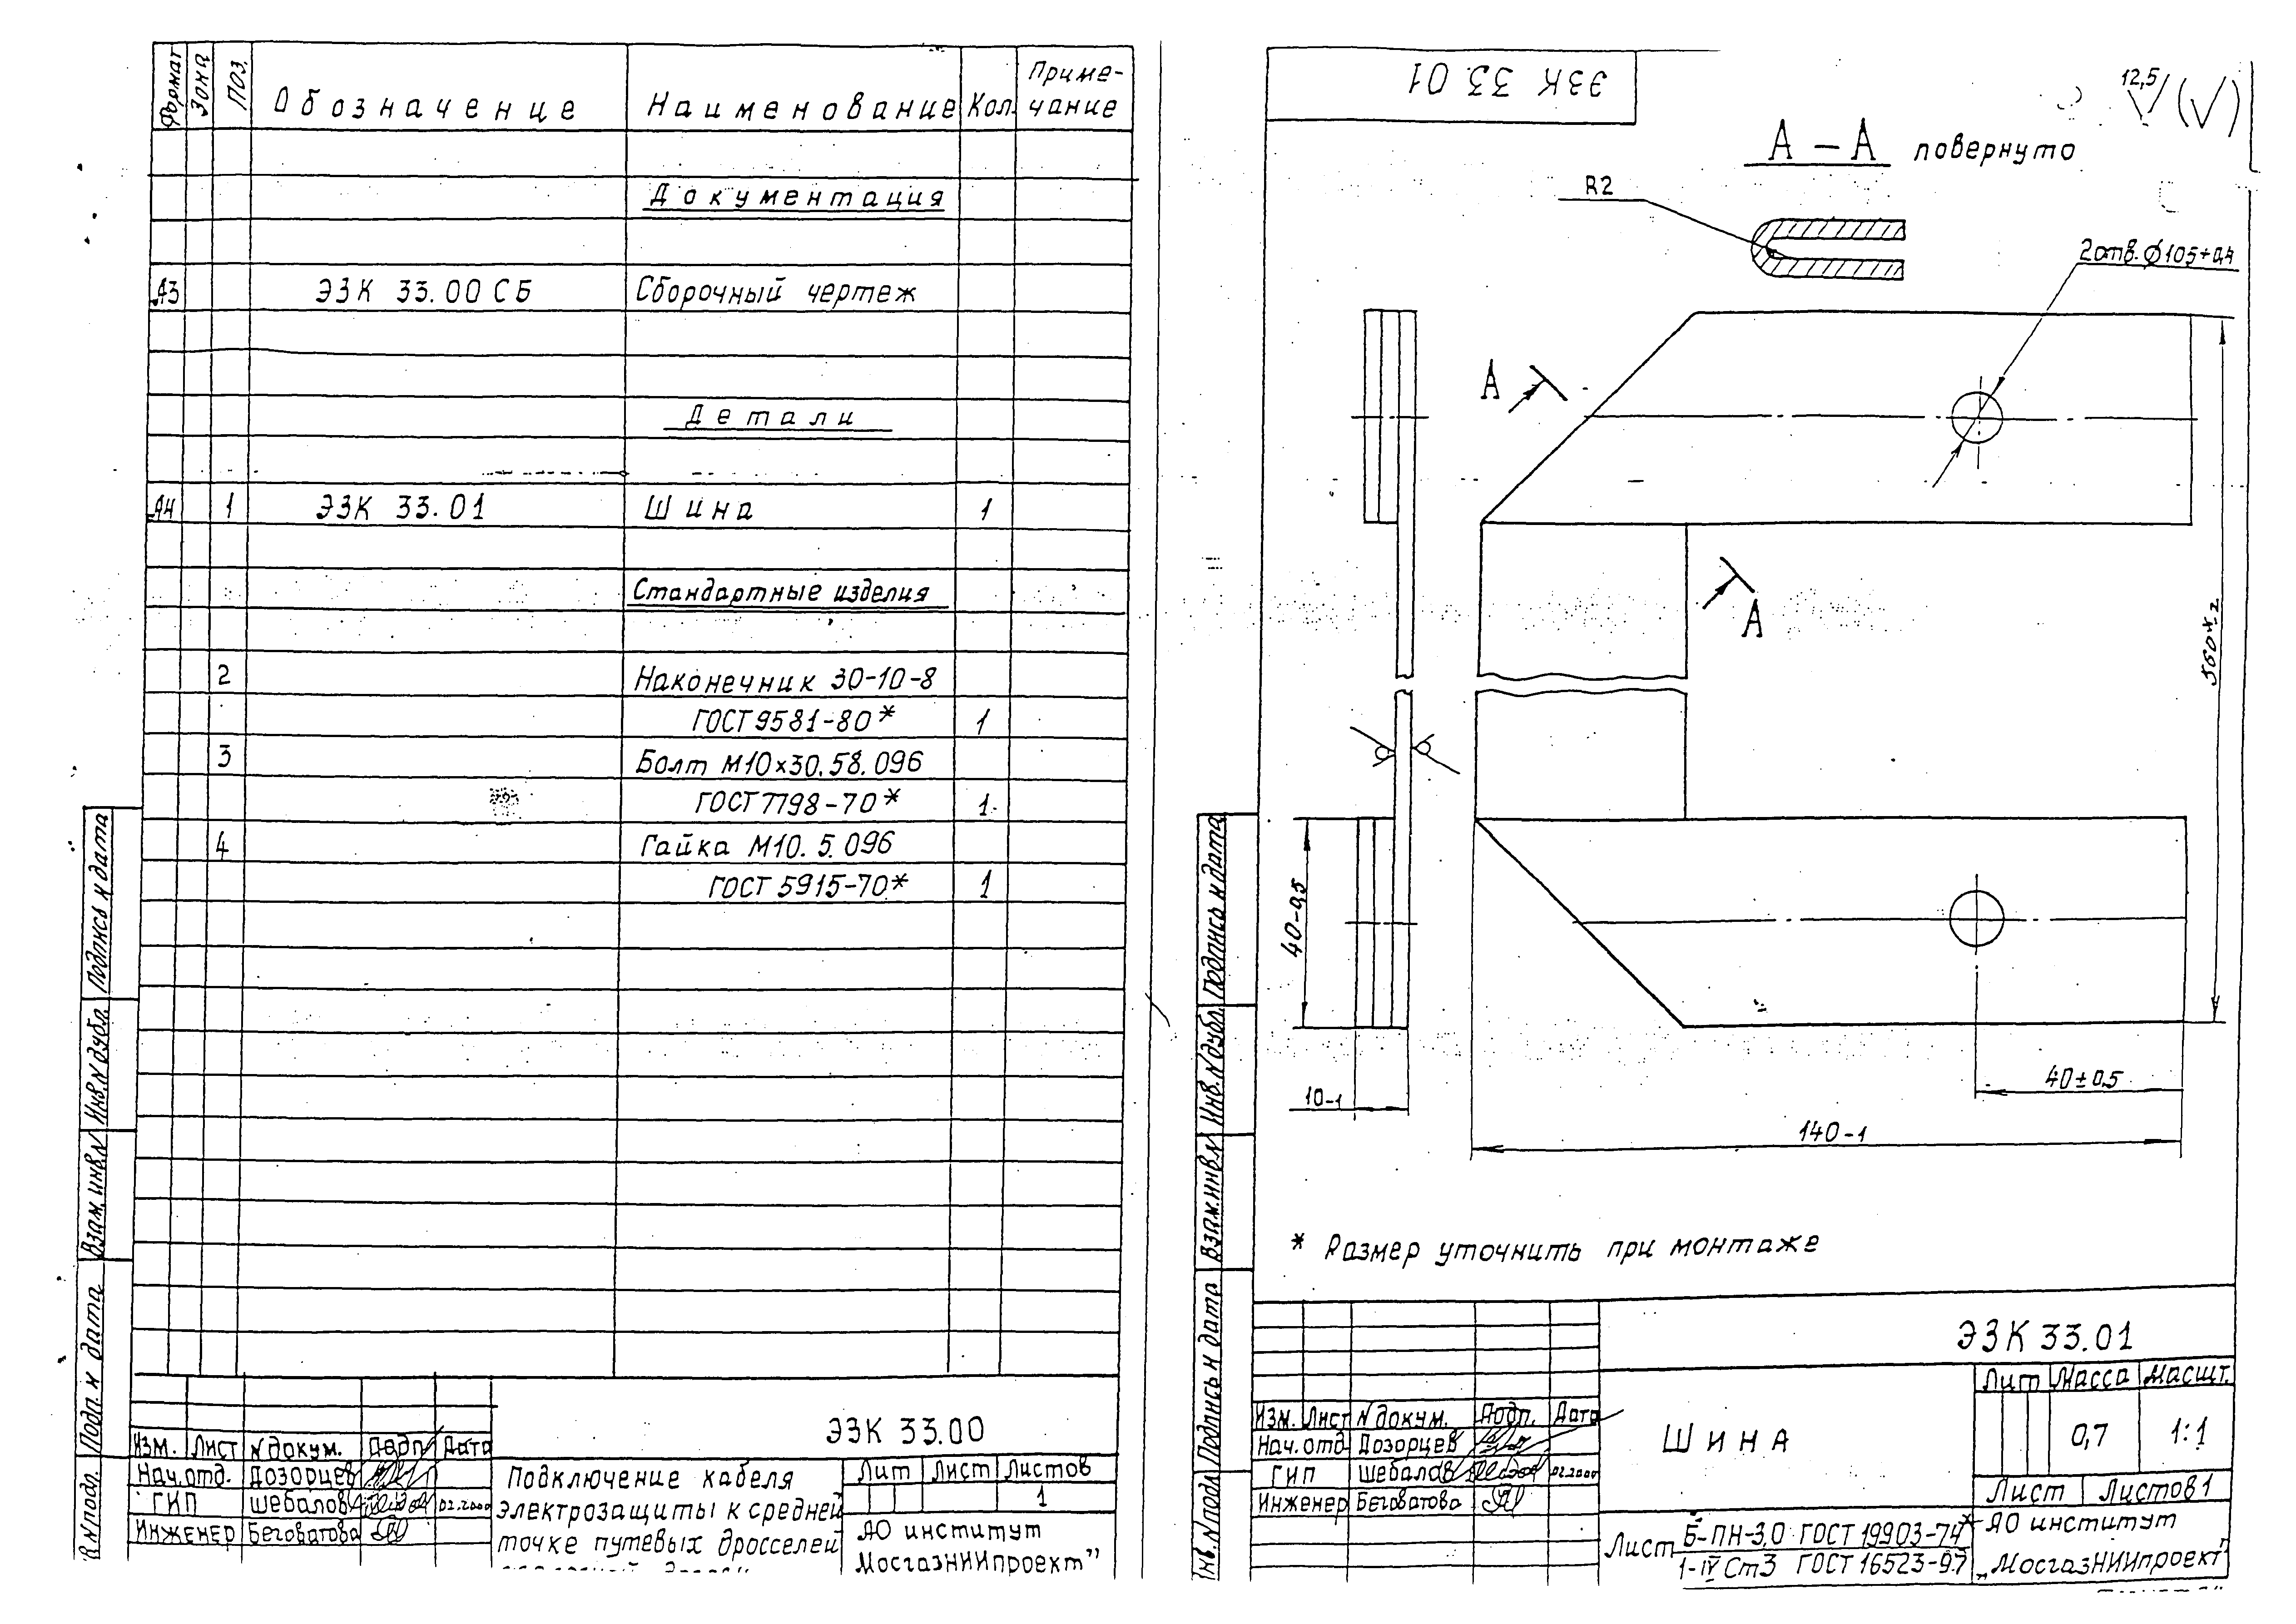 Формат Зона Поз. Обозначение Наименование Кол. Приме-
чание
Документация
А3 ЭЗК 33.00 СБ Сборочный чертеж
Детали
А4 1 ЭЗК 33.01 Шина 1
Стандартные изделия
2 Наконечник 30-10-8
ГОСТ 9581-80* 1
3 Болт М10х30.58.096
ГОСТ 7798-70* 1
4 Гайка М10.5.096
ГОСТ 5915-70* 1
Подпись и дата
Инв.N дубл.
Взам. инв.N
Подп. и дата
в.N подл.
ЭЗК 33.00
Изм. Лист N докум. Подп. Дата
Нач.отд. Дозорцев
ГИП Шебалов 02.2000
Инженер Беговатова
Подключение кабеля
электрозащиты к средней
точке путевых дросселей
Лит Лист Листов
1
АО институт
МосгазНИИпроект"
ЭЗК 33 01
12,5
А – А повернуто
R2
2отв. ϕ 105+0,4
А
А
560*-2
40-0,5
10-1
40±0,5
140-1
* Размер уточнить при монтаже
Подпись и дата
Инв.N дубл.
Взам.инв.N
Подпись и дата
Инв.N подл.
ЭЗК 33.01
Изм. Лист N докум. Подп. Дата
Нач.отд. Дозорцев
ГИП Шебалов 02.2000
Инженер Беговатова
Шина
Лит Масса Масшт.
0,7 1:1
Лист Листов 1
Лист Б-ПН-3,0 ГОСТ 19903-74*
1-IV Ст3 ГОСТ 16523-97
АО институт
„МосгазНИИпроект"